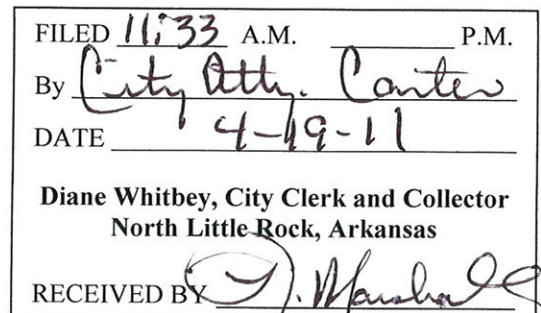 FILED 11:33 A.M. ________ P.M.
By City Atty. Carter
DATE 4-19-11
Diane Whitbey, City Clerk and Collector
North Little Rock, Arkansas
RECEIVED BY D. Marshall